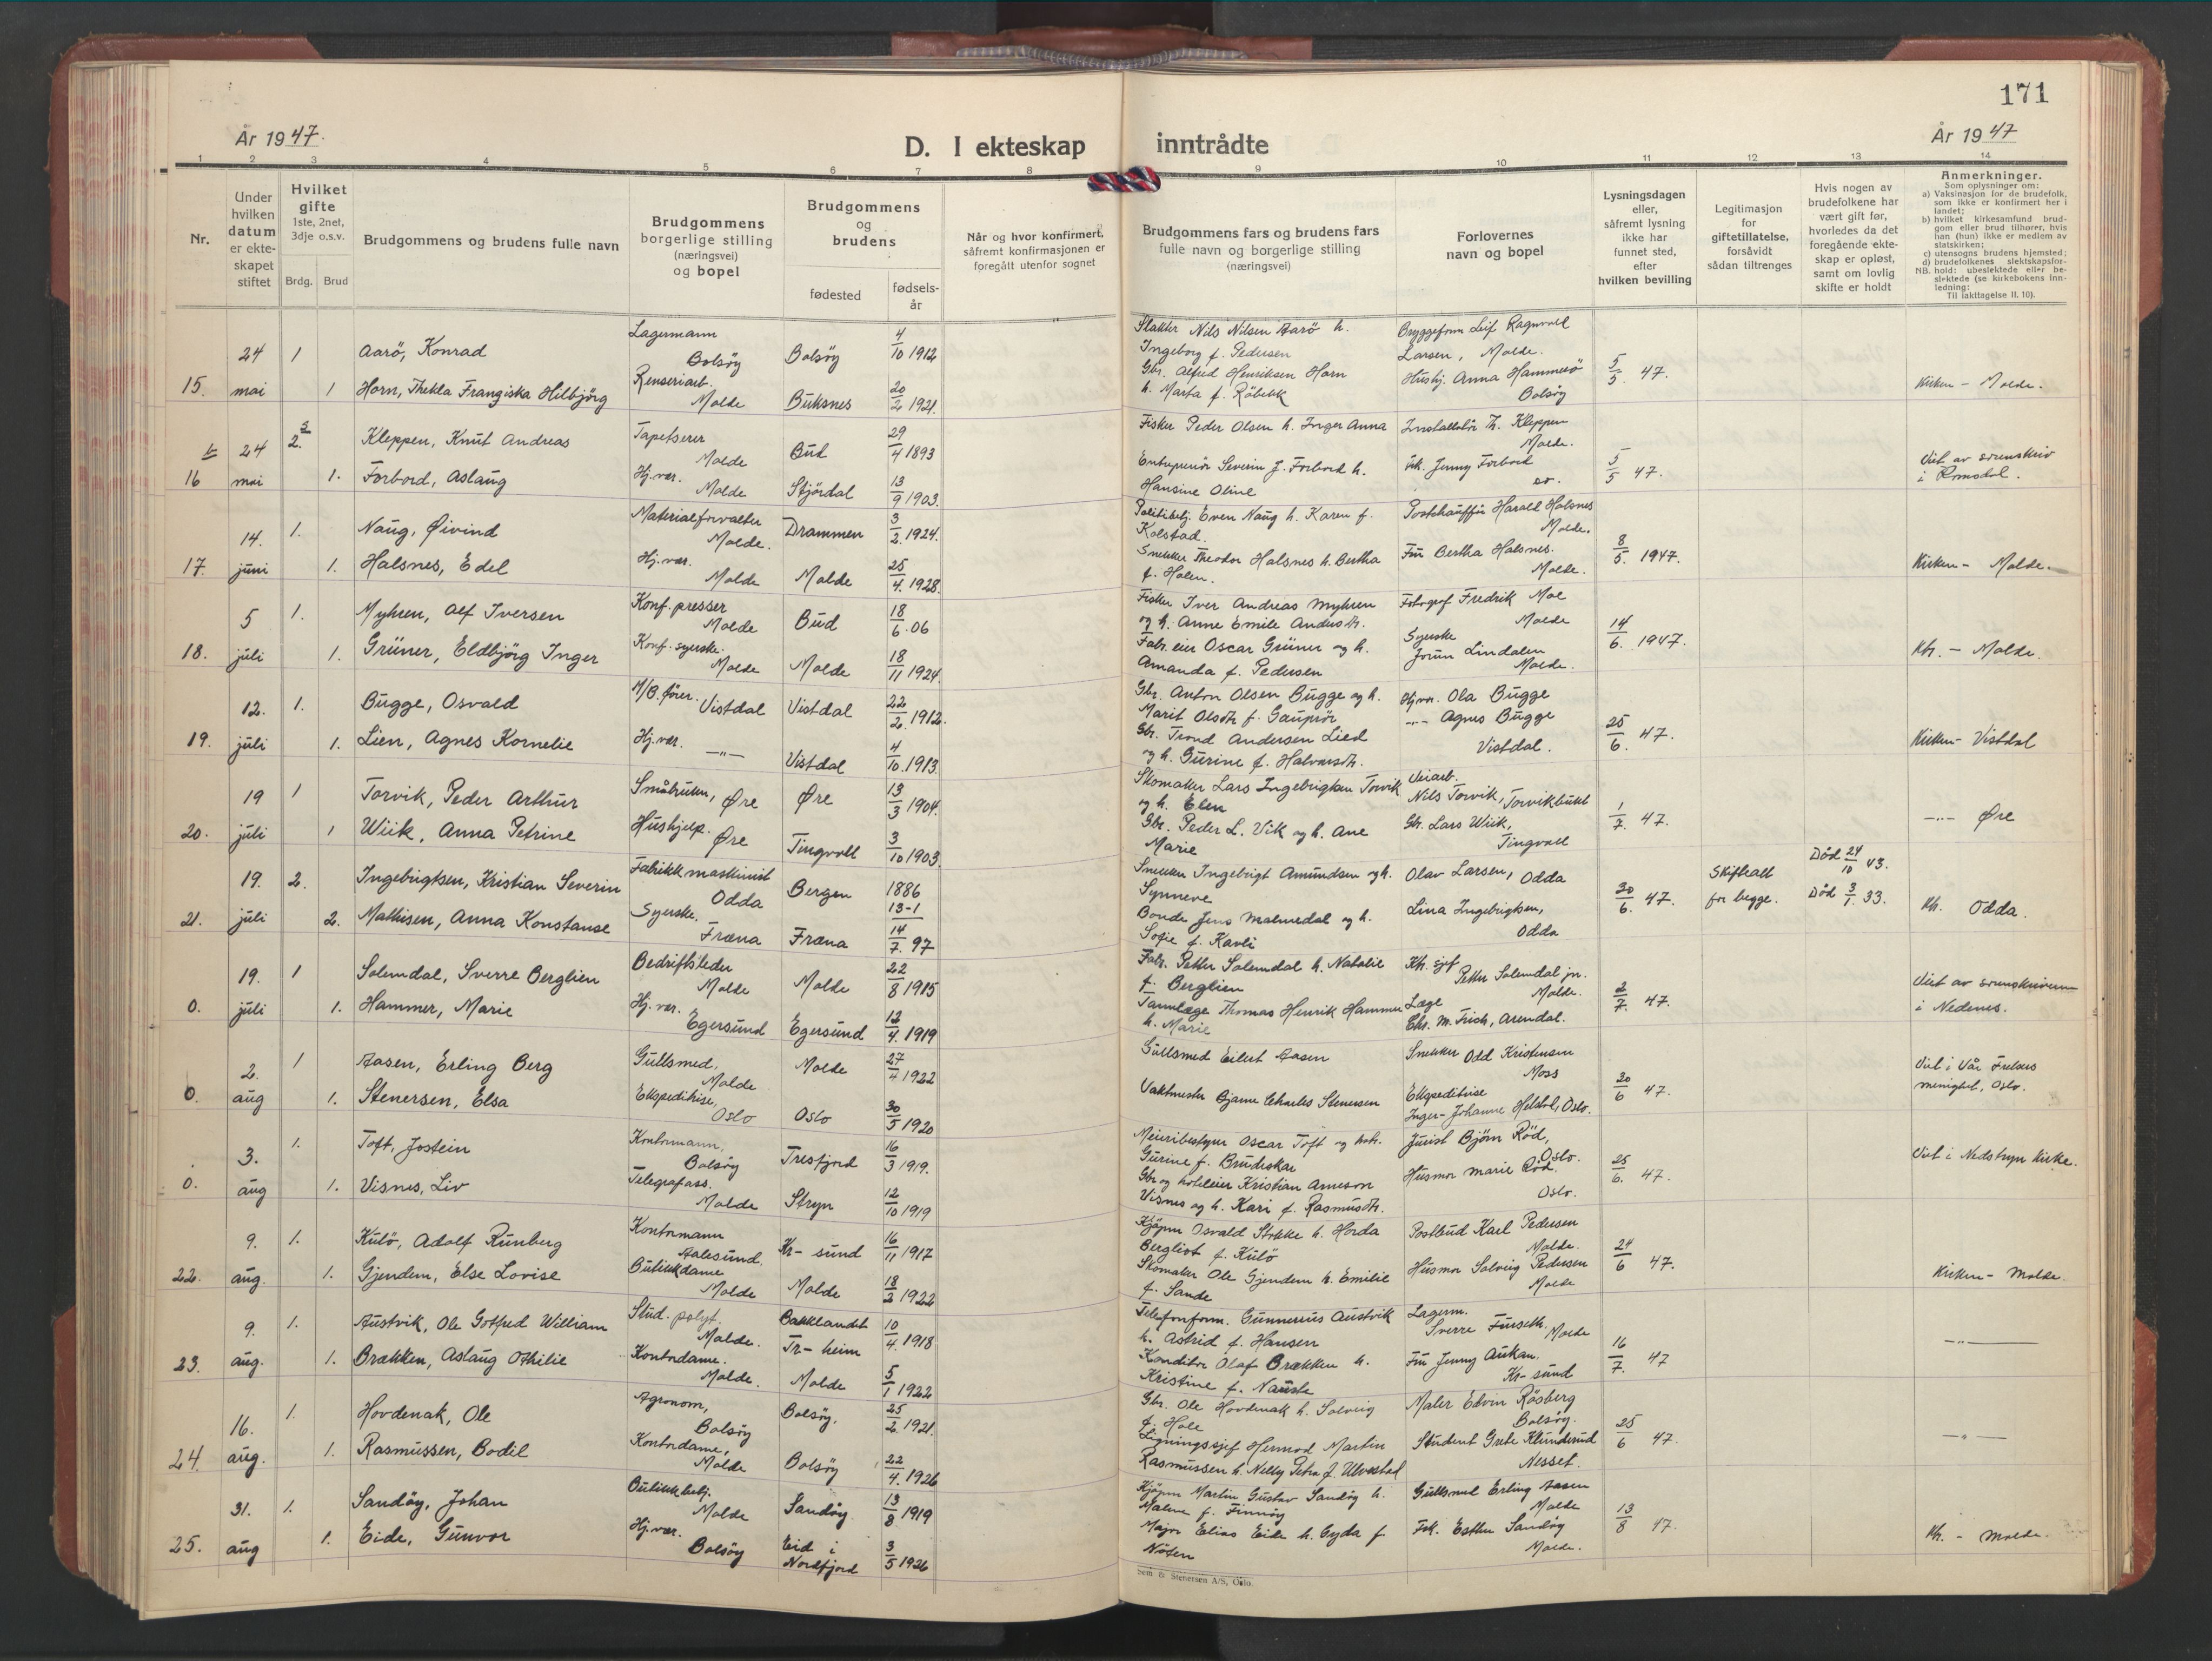 171
År 1947.
D. I ekteskap inntrådte
År 1947
1 2 3 4 5 6 7 8 9 10 11 12 13 14
Nr.
Under hvilken datum er ekteskapet stiftet
Hvilket gifte 1ste, 2net, 3dje o.s.v.
Brdg. Brud
Brudgommens og brudens fulle navn
Brudgommens borgerlige stilling (næringsvei) og bopel
Brudgommens og brudens
fødested
fødselsår
Når og hvor konfirmert, såfremt konfirmasjonen er foregått utenfor sognet
Brudgommens fars og brudens fars fulle navn og borgerlige stilling (næringsvei)
Forlovernes navn og bopel
Lysningsdagen eller, såfremt lysning ikke har funnet sted, efter hvilken bevilling
Legitimasjon for giftetillatelse, forsåvidt sådan tiltrenges
Hvis nogen av brudefolkene har vært gift før, hvorledes da det foregående ekteskap er opløst, samt om lovlig skifte er holdt
Anmerkninger.
Som oplysninger om:
a) Vaksinasjon for de brudefolk, som ikke er konfirmert her i landet;
b) hvilket kirkesamfund brudgom eller brud tilhører, hvis han (hun) ikke er medlem av statskirken;
c) utensogns brudens hjemsted;
d) brudefolkenes slektskapsforhold: ubeslektede eller beslektede (se kirkebokens innledning:
NB. Til iakttagelse II. 10).
24 1 Aarö, Konrad Lagermann Bolsöy Bolsöy 4/10 1912 Slakter Nils Nilsen Aarö h. Ingeborg f. Pedersen Bryggeform Leif Ragnvald Larsen, Molde.
15. mai 1 Horn, Thekla Frangiska Hilbjörg Renseriarb. Molde Buksnes 20/2 1921. Gbr. Alfred Henriksen Horn h. Marta f. Röbekk Hushj. Anna Hammerö Bolsöy 5/5 47. Kirken - Molde.
24 2. Kleppen, Knut Andreas Tapetserer Molde Bud 29/4 1893 Fisker Peder Olsen h. Inger Anna Installatör Th. Kleppen Molde.
16 mai 1. Forbord, Aslaug Hj.vær. Molde Stjördal 13/9 1903. Entreprenör Severin J. Forbord h. Hansine Oline Frk. Jenny Forbord 5/5 47. Viet av sorenskriv i Romsdal.
14. 1. Naug, Øivind Materialforvalter Molde. Drammen 3/2 1924. Politibetj. Even Naug h. Karen f. Kolstad. Postchauffür Harald Halsnes Molde.
17. juni 1. Halsnes, Edel Hj.vær. Molde Molde 25/4. 1928. Snekker Theodor Halsnes h. Bertha f. Holen. Fru Bertha Halsnes. Molde. 8/5. 1947. Kirken - Molde.
5 1. Myhren, Alf Iversen Konf. presser Molde Bud 18/6. 06 Fisker Iver Andreas Myhren og h. Anne Emile Andersdtr. Fotograf Fredrik Moe Molde
18. juli 1. Grüner, Eldbjörg Inger Konf. syerske. Molde Molde 18/11 1924. Fabr. eier Oscar Grüner og h. Amanda f. Pedersen Syerske Jorun Lindalen Molde. 14/6. 1947. Kh. - Molde.
12. 1. Bugge, Osvald M/B. förer. Vistdal Vistdal 22/2. 1912. Gbr. Anton Olsen Bugge og h. Marit Olsdtr f. Gauprör Hj.vær. Ola Bugge
19. juli 1. Lien, Agnes Kornelie Hj.vær. -"- Vistdal 4/10. 1913. Gbr. Trond Andersen Lied og h. Gurine f. Halvorsdtr. -"- Agnes Bugge Vistdal. 25/6. 47. Kirken - Vistdal
19 1 Torvik, Peder Arthur Småbruker, Øre Øre 13/3 1904. Skomaker Lars Ingebrigtsen Torvik og h. Elen Veiarb. Nils Torvik, Torvikbukt
20. juli 1 Wiik, Anna Petrine Hushjelp. Øre Tingvoll 3/10 1903. Gbr. Peder L. Vik og h. Ane Marie Gbr. Lars Wiik, Tingvoll 1/7. 47. -"- Øre
19. 2. Ingebrigtsen, Kristian Severin Fabrikkmaskinist Odda Bergen 1886 13-1 Snekker Ingebrigt Amundsen og h. Synneve Olav Larsen, Odda Skifteatt Död 24/10 43.
21. juli 2. Mathisen, Anna Konstanse Syerske. Fræna Fræna 14/7. 97 Bonde Jens Malmedal og h. Sofie f. Kavli Lina Ingebrigtsen, Odda 30/6. 47. for begge. Död 3/1. 33. Kh. Odda.
19. 1 Solemdal, Sverre Berglien Bedriftsleder Molde Molde 22/8 1915 Fabr. Petter Solemdal h. Natalie f. Berglien Ktr. sjef Petter Solemdal jr. Molde.
0. juli 1. Hammer, Marie Hj.vær. Egersund Egersund 12/4. 1919 Tannlæge Thomas Henrik Hammer h. Marie Læge Chr. M. Frich, Arendal. 2/7. 47. Viet av sorenskriveren i Nedenes.
2. 1 Aasen, Erling Berg Gullsmed, Molde Molde 27/4 1922 Gullsmed Eilert Aasen Snekker Odd Kristensen Moss
0. aug 1. Stenersen, Elsa Ekspeditrise, Oslo Oslo 30/5 1920 Vaktmester Bjarne Charles Stenersen Ekspeditrise Inger-Johanne Helstol, Oslo. 20/6 47. Viet i Vår Frelsers menighet, Oslo.
3. 1. Toft, Jostein Kontormann, Bolsöy Tresfjord 16/3 1919. Meieribestyrer Oscar Toft og h. Gurine f. Brudeskar Jurist Björn Röd, Oslo.
0. aug 1. Visnes, Liv Telegrafass. Molde Stryn 12/10 1919 Gbr og hoteleier Kristian Arneson Visnes og h. Kari f. Rasmusdtr. Husmor Marie Röd. Oslo. 25/6. 47. Viet i Nedstryn Kirke.
9. 1. Kulö, Adolf Runberg Kontormann Aalesund. Kr-sund 16/11 1917 Kjöpm Osvald Stokke h. Horda Bergliot f. Kulö Postbud Karl Pedersen Molde.
22. aug. 1. Gjendem, Else Lovise Butikkdame Molde Molde 18/2 1922 Skomaker Ole Gjendem h. Emilie f. Sande Husmor Solveig Pedersen Molde 24/6 47. Kirken - Molde.
9. 1. Austvik, Ole Gotfred William Stud. polyt. Molde. Bakklandet Tr-heim 10/4. 1918 Telefonform. Gunnerius Austvik h. Astrid f. Hansen Lagerm. Sverre Furseth. Molde
23. aug. 1. Brækken, Aslaug Othilie Kontordame. Molde. Molde 5/1 1922 Konditor Olaf Brækken h. Kristine f. Nauste Fru Jenny Aukan. Kr-sund 16/7. 47 -"-
16. 1. Hovdenak, Ole Agronom, Bolsöy Bolsöy. 25/2. 1921. Gbr. Ole Hovdenak h. Solveig f. Hole Maler Edvin Rösberg Bolsöy.
24. aug. 1. Rasmussen, Bodil Kontordame, Molde Bolsöy 22/4. 1926 Ligningssjef Hermod Martin Rasmussen h. Nelly Petra f. Ulvestad Student Grete Klunderud Nesset. 25/6 47. -"-
31. 1. Sandöy, Johan Butikkbetj. Molde Sandöy 13/8 1919 Kjöpm Martin Gustav Sandöy h. Malene f. Finnöy Gullsmed Erling Aasen Molde
25. aug 1. Eide, Gunvor Hj.vær. Bolsöy Eid i Nordfjord 3/5 1926 Major Elias Eide h. Gyda f Nöten Frk. Esther Sandöy Molde. 13/8 47. Kh. - Molde.
Sem & Stenersen A/S, Oslo.